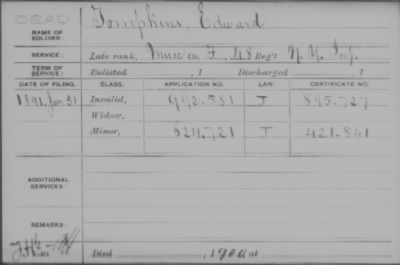 DEAD
NAME OF SOLDIER: Tompkins, Edward
SERVICE: Late rank, Co. F, 48 Reg't N. Y. Inf.
TERM OF SERVICE: Enlisted , 1 Discharged , 1
DATE OF FILING. CLASS. APPLICATION NO. LAW. CERTIFICATE NO.
1891, Jan. 31 Invalid, 992.581 J 895.727
Widow,
Minor, 624,721 J 421.841
ADDITIONAL SERVICES:
REMARKS:
Died , 190 at